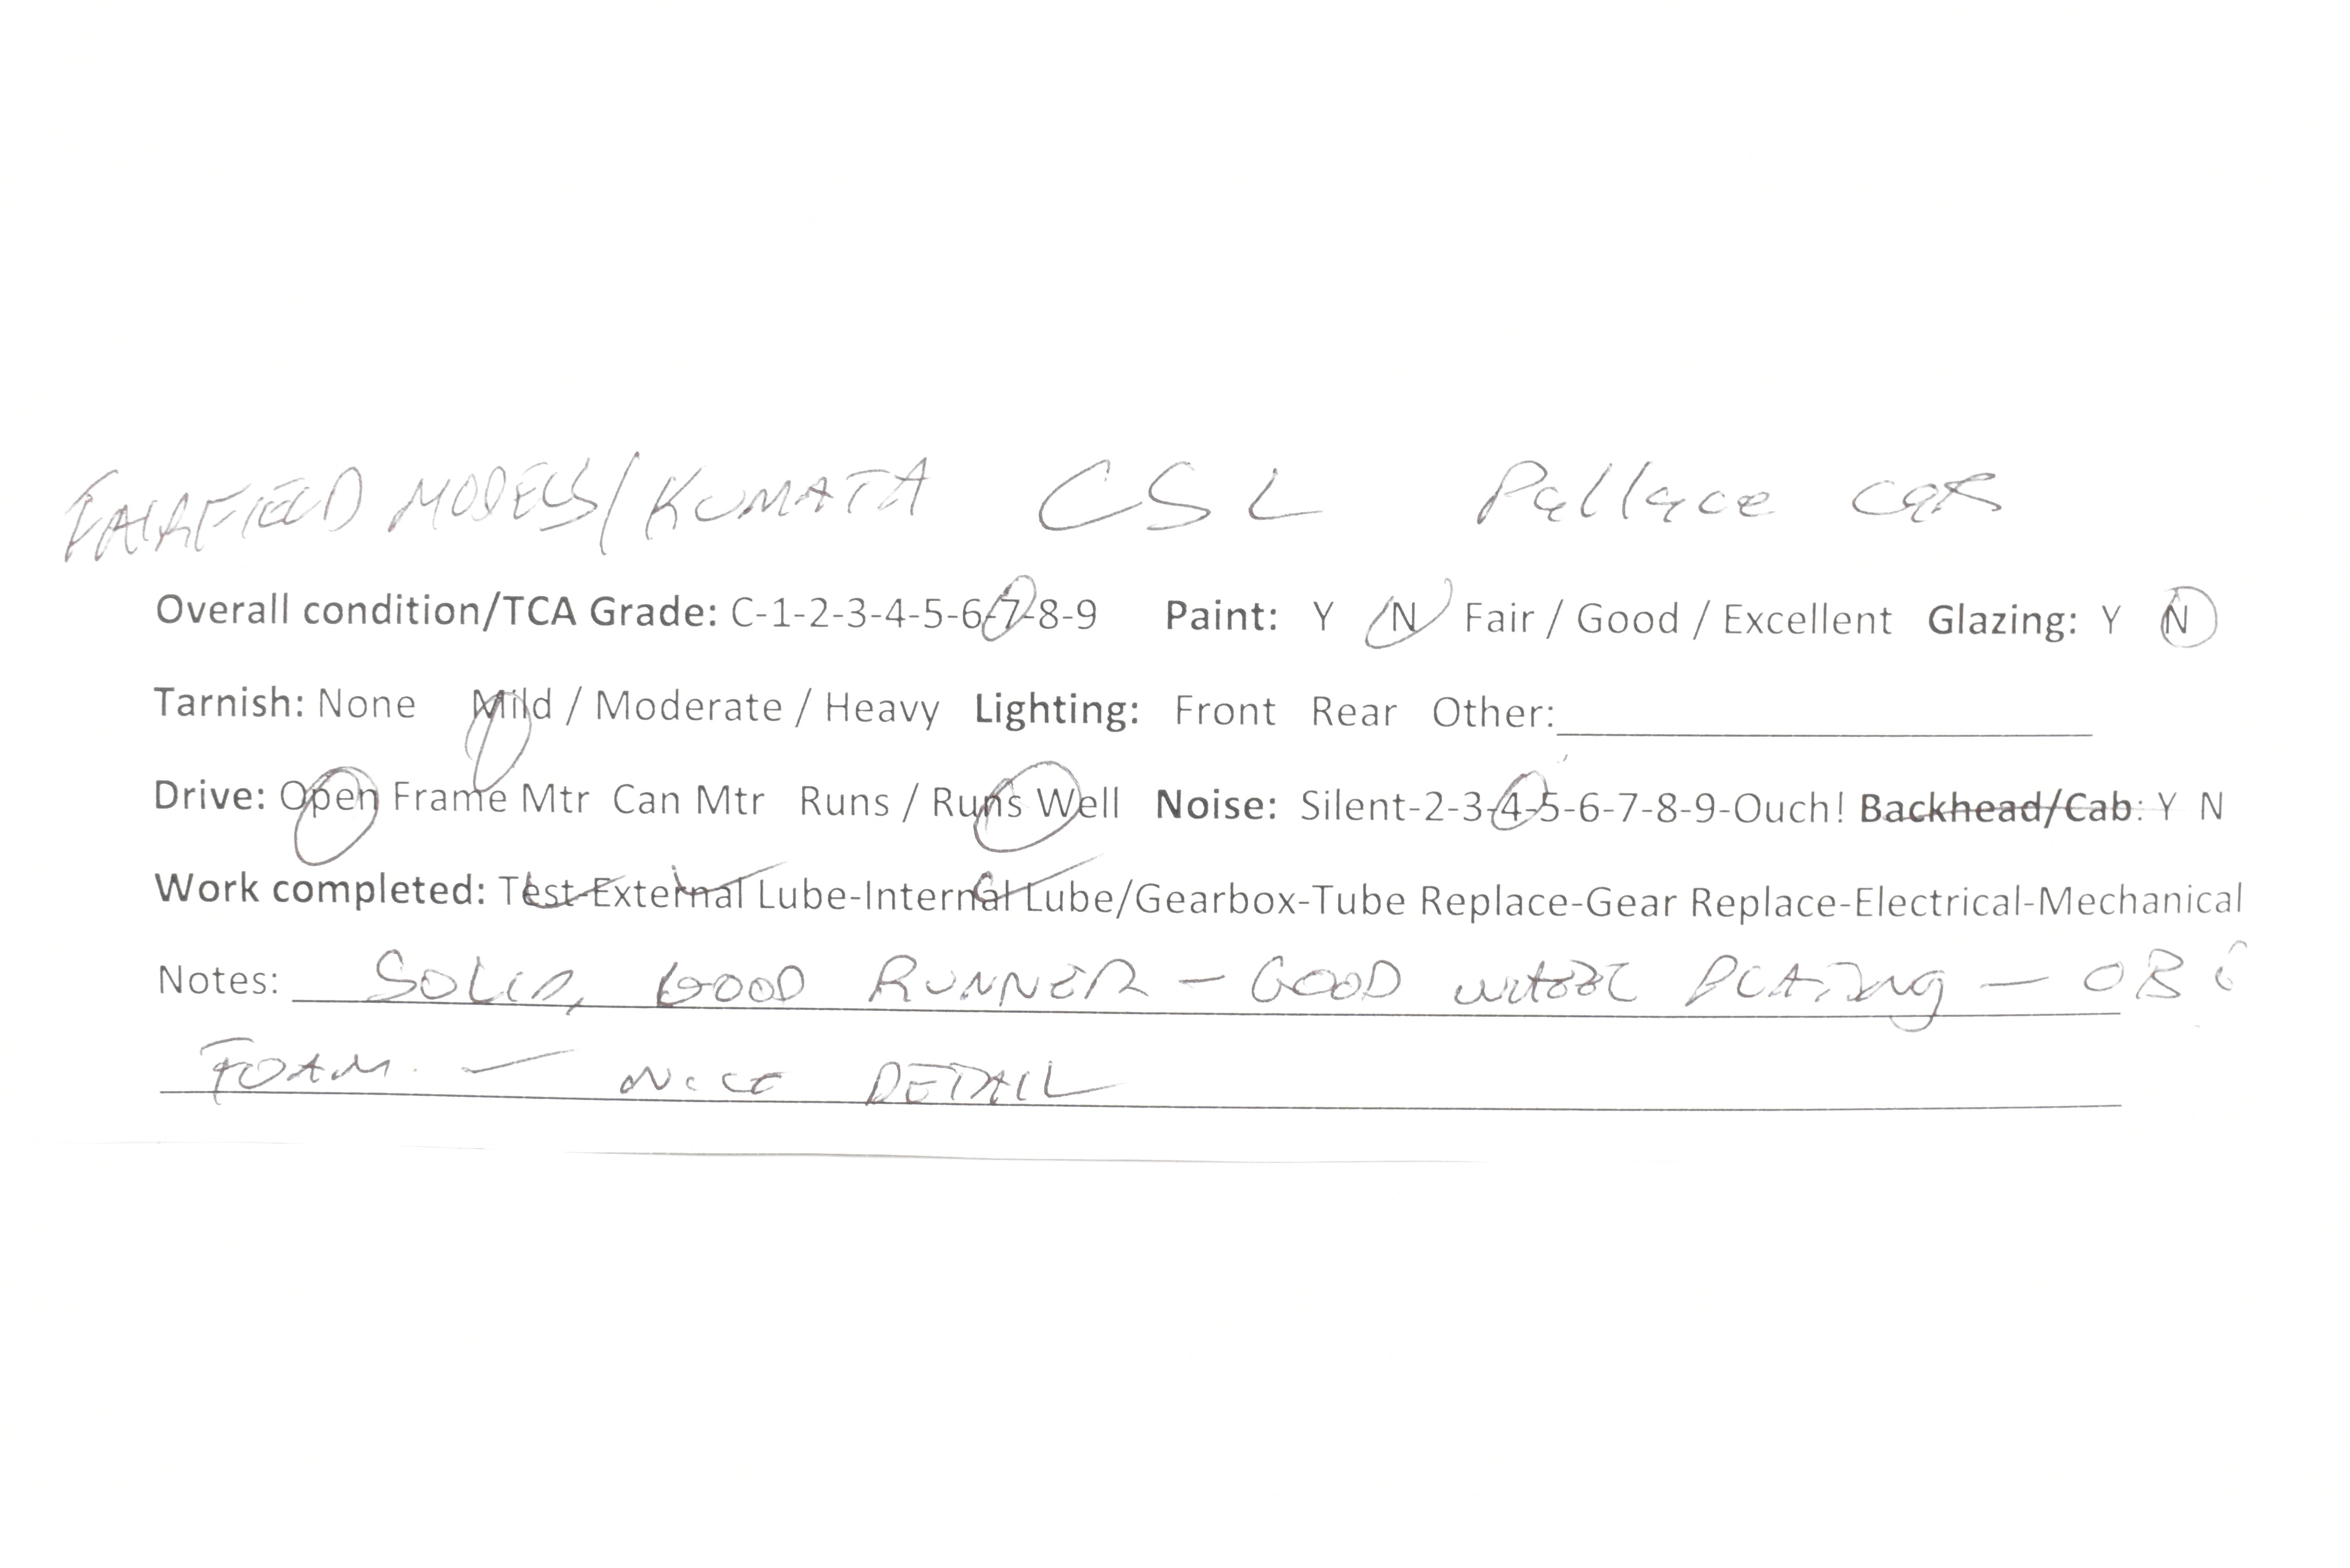 FAIRFIELD MODELS/KUMATA CSL Pallace car
Overall condition/TCA Grade: C-1-2-3-4-5-6-7-8-9 Paint: Y N Fair / Good / Excellent Glazing: Y N
Tarnish: None Mild / Moderate / Heavy Lighting: Front Rear Other:
Drive: Open Frame Mtr Can Mtr Runs / Runs Well Noise: Silent-2-3-4-5-6-7-8-9-Ouch! Backhead/Cab: Y N
Work completed: Test-External Lube-Internal Lube/Gearbox-Tube Replace-Gear Replace-Electrical-Mechanical
Notes: SOLID, GOOD RUNNER - GOOD WHEEL PLATING - OB
FOAM. - NICE DETAIL